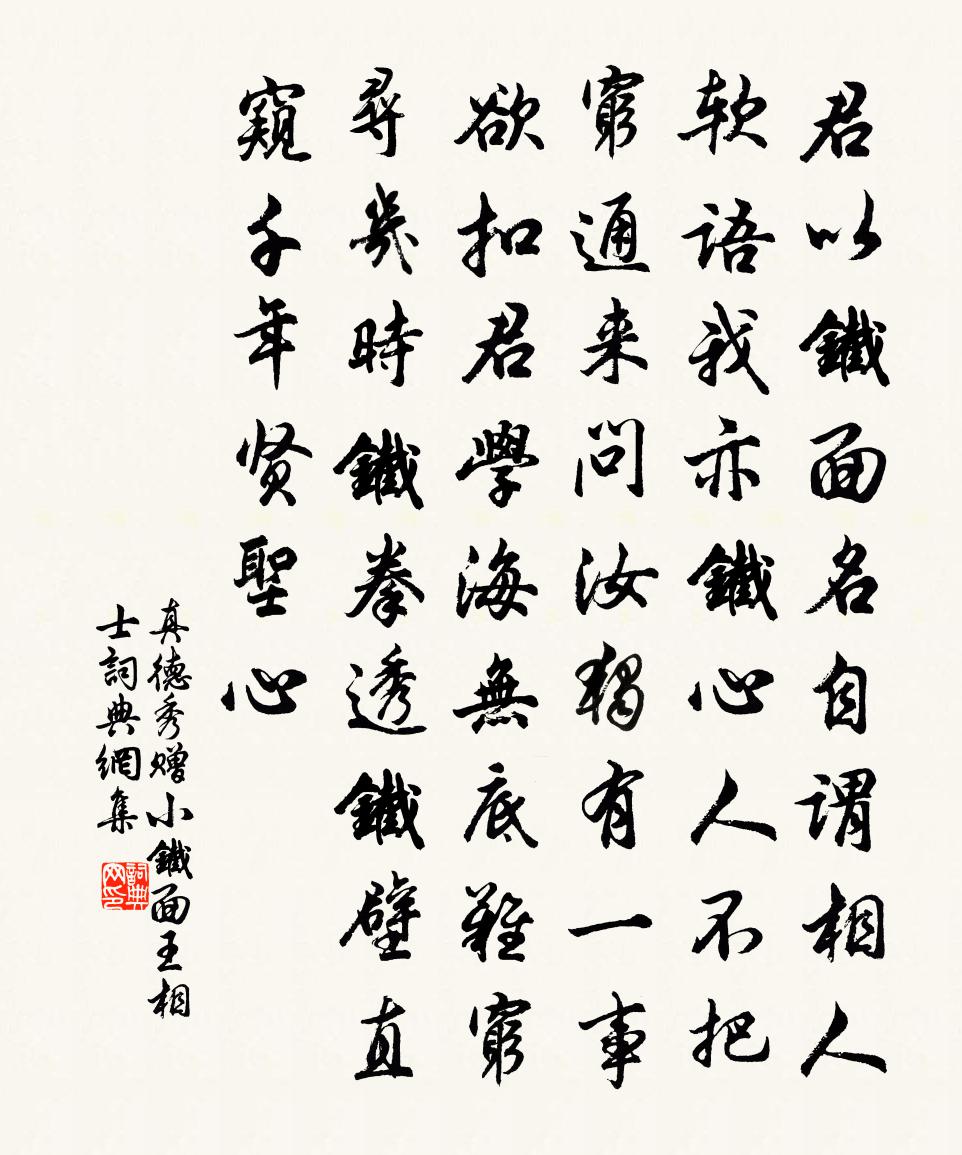 君以鐵面名自謂相人
软語我亦鐵心人不把
窮通来問汝獨有一事
欲扣君學海無底難窮
尋幾時鐵拳透鐵壁直
窺千年贤聖心
真德秀赠小鐵面王相
士詞典網集
詞典网印